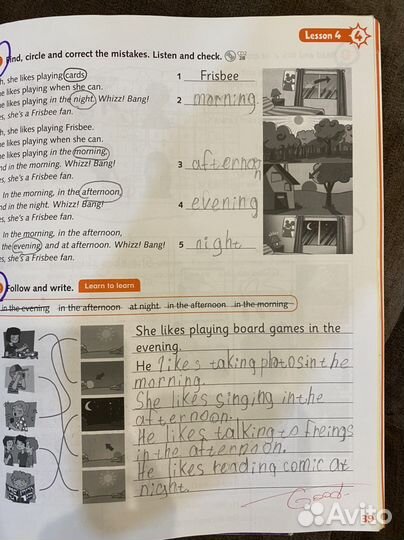 Lesson 4 4
Find, circle and correct the mistakes. Listen and check.
h, she likes playing cards
he likes playing when she can.
he likes playing in the night. Whizz! Bang!
es, she's a Frisbee fan.
h, she likes playing Frisbee.
he likes playing when she can.
he likes playing in the morning,
nd in the morning. Whizz! Bang!
es, she's a Frisbee fan.
In the morning, in the afternoon,
nd in the night. Whizz! Bang!
es, she's a Frisbee fan.
In the morning, in the afternoon,
the evening and at afternoon. Whizz! Bang!
es, she's a Frisbee fan.
1 Frisbee
2 morning
3 afternoon
4 evening
5 night
Follow and write. Learn to learn
in the evening in the afternoon at night in the afternoon in the morning
She likes playing board games in the
evening.
He likes taking photos in the
morning.
She likes singing in the
afternoon.
He likes talking to freings
in the afternoon.
He likes reading comic at
night.
Good
39
Avito